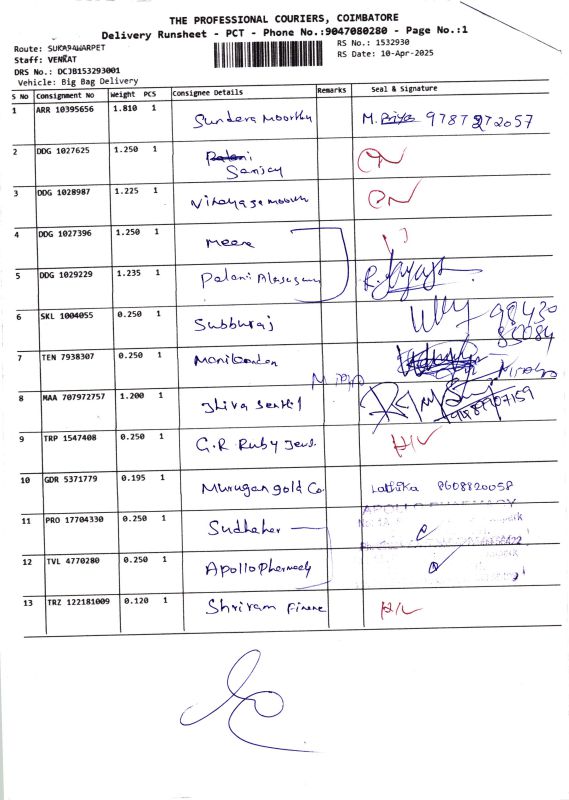 THE PROFESSIONAL COURIERS, COIMBATORE
Delivery Runsheet - PCT - Phone No.:9047080280 - Page No.:1
Route: SUKARAWARPET
RS No.: 1532930
Staff: VENKAT
RS Date: 10-Apr-2025
DRS No.: DCJB153293001
Vehicle: Big Bag Delivery
S No Consignment No Weight PCS Consignee Details Remarks Seal & Signature
1 ARR 10395656 1.810 1 Sundera Moorthy M. Priya 9787272057
2 DDG 1027625 1.250 1 Palani Sanjay
3 DDG 1028987 1.225 1
4 DDG 1027396 1.250 1 Meera
5 DDG 1029229 1.235 1 Palani
6 SKL 1004055 0.250 1 Subburaj 98430
7 TEN 7938307 0.250 1
8 MAA 707972757 1.200 1 Jhiva Senthil
9 TRP 1547408 0.250 1 G.R Ruby
10 GDR 5371779 0.195 1 Murugan gold Co 8608820058
11 PRO 17704330 0.250 1 Sudhaher APOLLO PHARMACY
12 TVL 4770280 0.250 1 Apollo
13 TRZ 122181009 0.120 1 Shriram H/L